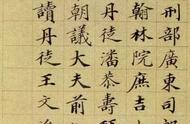 刑部廣東司
翰林院庶吉士
丹徒潘恭壽
朝議大夫前
讀丹徒王文